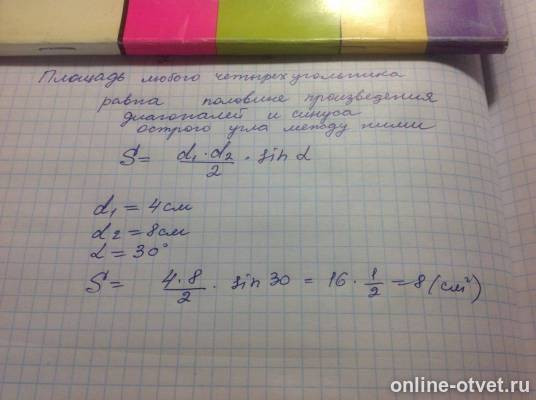 Площадь любого четырехугольника
равна половине произведения
диагоналей и синуса
острого угла между ними
S = d₁·d₂/2 · sin α
d₁ = 4 см
d₂ = 8 см
α = 30°
S = 4·8/2 · sin 30 = 16 · 1/2 = 8 (см²)
online-otvet.ru